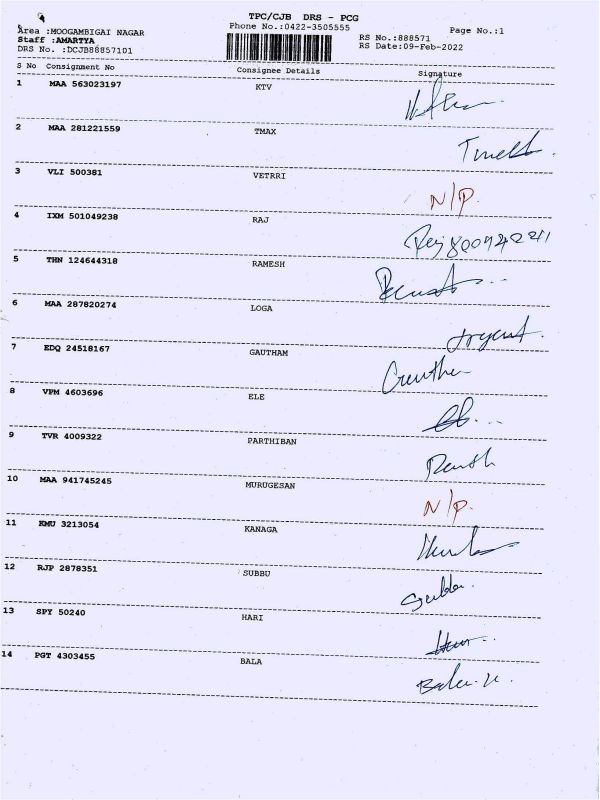 TPC/CJB DRS - PCG
Area :MOOGAMBIGAI NAGAR Phone No.:0422-3505555 Page No.:1
Staff :AMARTYA RS No.:888571
DRS No. :DCJB88857101 RS Date:09-Feb-2022
S No Consignment No Consignee Details Signature
1 MAA 563023197 KTV
2 MAA 281221559 TMAX
3 VLI 500381 VETRRI N/P.
4 IXM 501049238 RAJ
5 THN 124644318 RAMESH
6 MAA 287820274 LOGA
7 EDQ 24518167 GAUTHAM
8 VPM 4603696 ELE
9 TVR 4009322 PARTHIBAN
10 MAA 941745245 MURUGESAN N/P.
11 KMU 3213054 KANAGA
12 RJP 2878351 SUBBU
13 SPY 50240 HARI
14 PGT 4303455 BALA